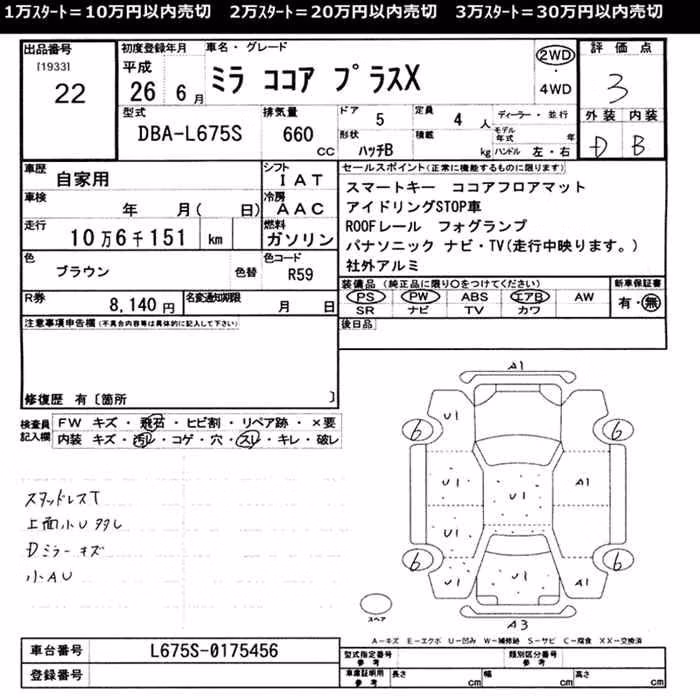 1万スタート=10万円以内売切 2万スタート=20万円以内売切 3万スタート=30万円以内売切
出品番号
[1933]
22
初度登録年月
平成
26 6月
車名・グレード
ミラ ココア プラスX
2WD
・
4WD
評価点
3
外装 内装
D B
型式
DBA-L675S
排気量
660
CC
ドア
5
定員
4
人
形状
ハッチB
積載
kg
ディーラー・並行
モデル年式 年
ハンドル 左・右
車歴
自家用
シフト
IAT
車検
年 月( 日)
冷房
AAC
走行
10万6千151 km
燃料
ガソリン
色
ブラウン
色替
色コード
R59
R券
8,140円
名変通知期限
月 日
セールスポイント(正常に機能するものに限ります)
スマートキー ココアフロアマット
アイドリングSTOP車
ROOFレール フォグランプ
パナソニック ナビ・TV(走行中映ります。)
社外アルミ
装備品(純正品に限り○をつけてください)
PS PW ABS エアB AW
SR ナビ TV カワ
新車保証書
有・無
後日品
注意事項申告欄(不具合内容等は具体的に記入して下さい)
修復歴 有〔箇所 〕
検査員
記入欄
FW キズ・飛石・ヒビ割・リペア跡・×要
内装 キズ・汚レ・コゲ・穴・スレ・キレ・破レ
スタッドレスT
上面小Uタタレ
Dミラーキズ
小AU
A1
U1
6 6
U1 U1 A1
U1
6 6
U1 U1 A1
A3
スペア
A-キズ E-エクボ U-凹み W-補修跡 S-サビ C-腐食 XX-交換済
車台番号
L675S-0175456
登録番号
型式指定番号
参考
類別区分番号
参考
車庫証明用
参考
長さ cm 幅 cm 高さ cm